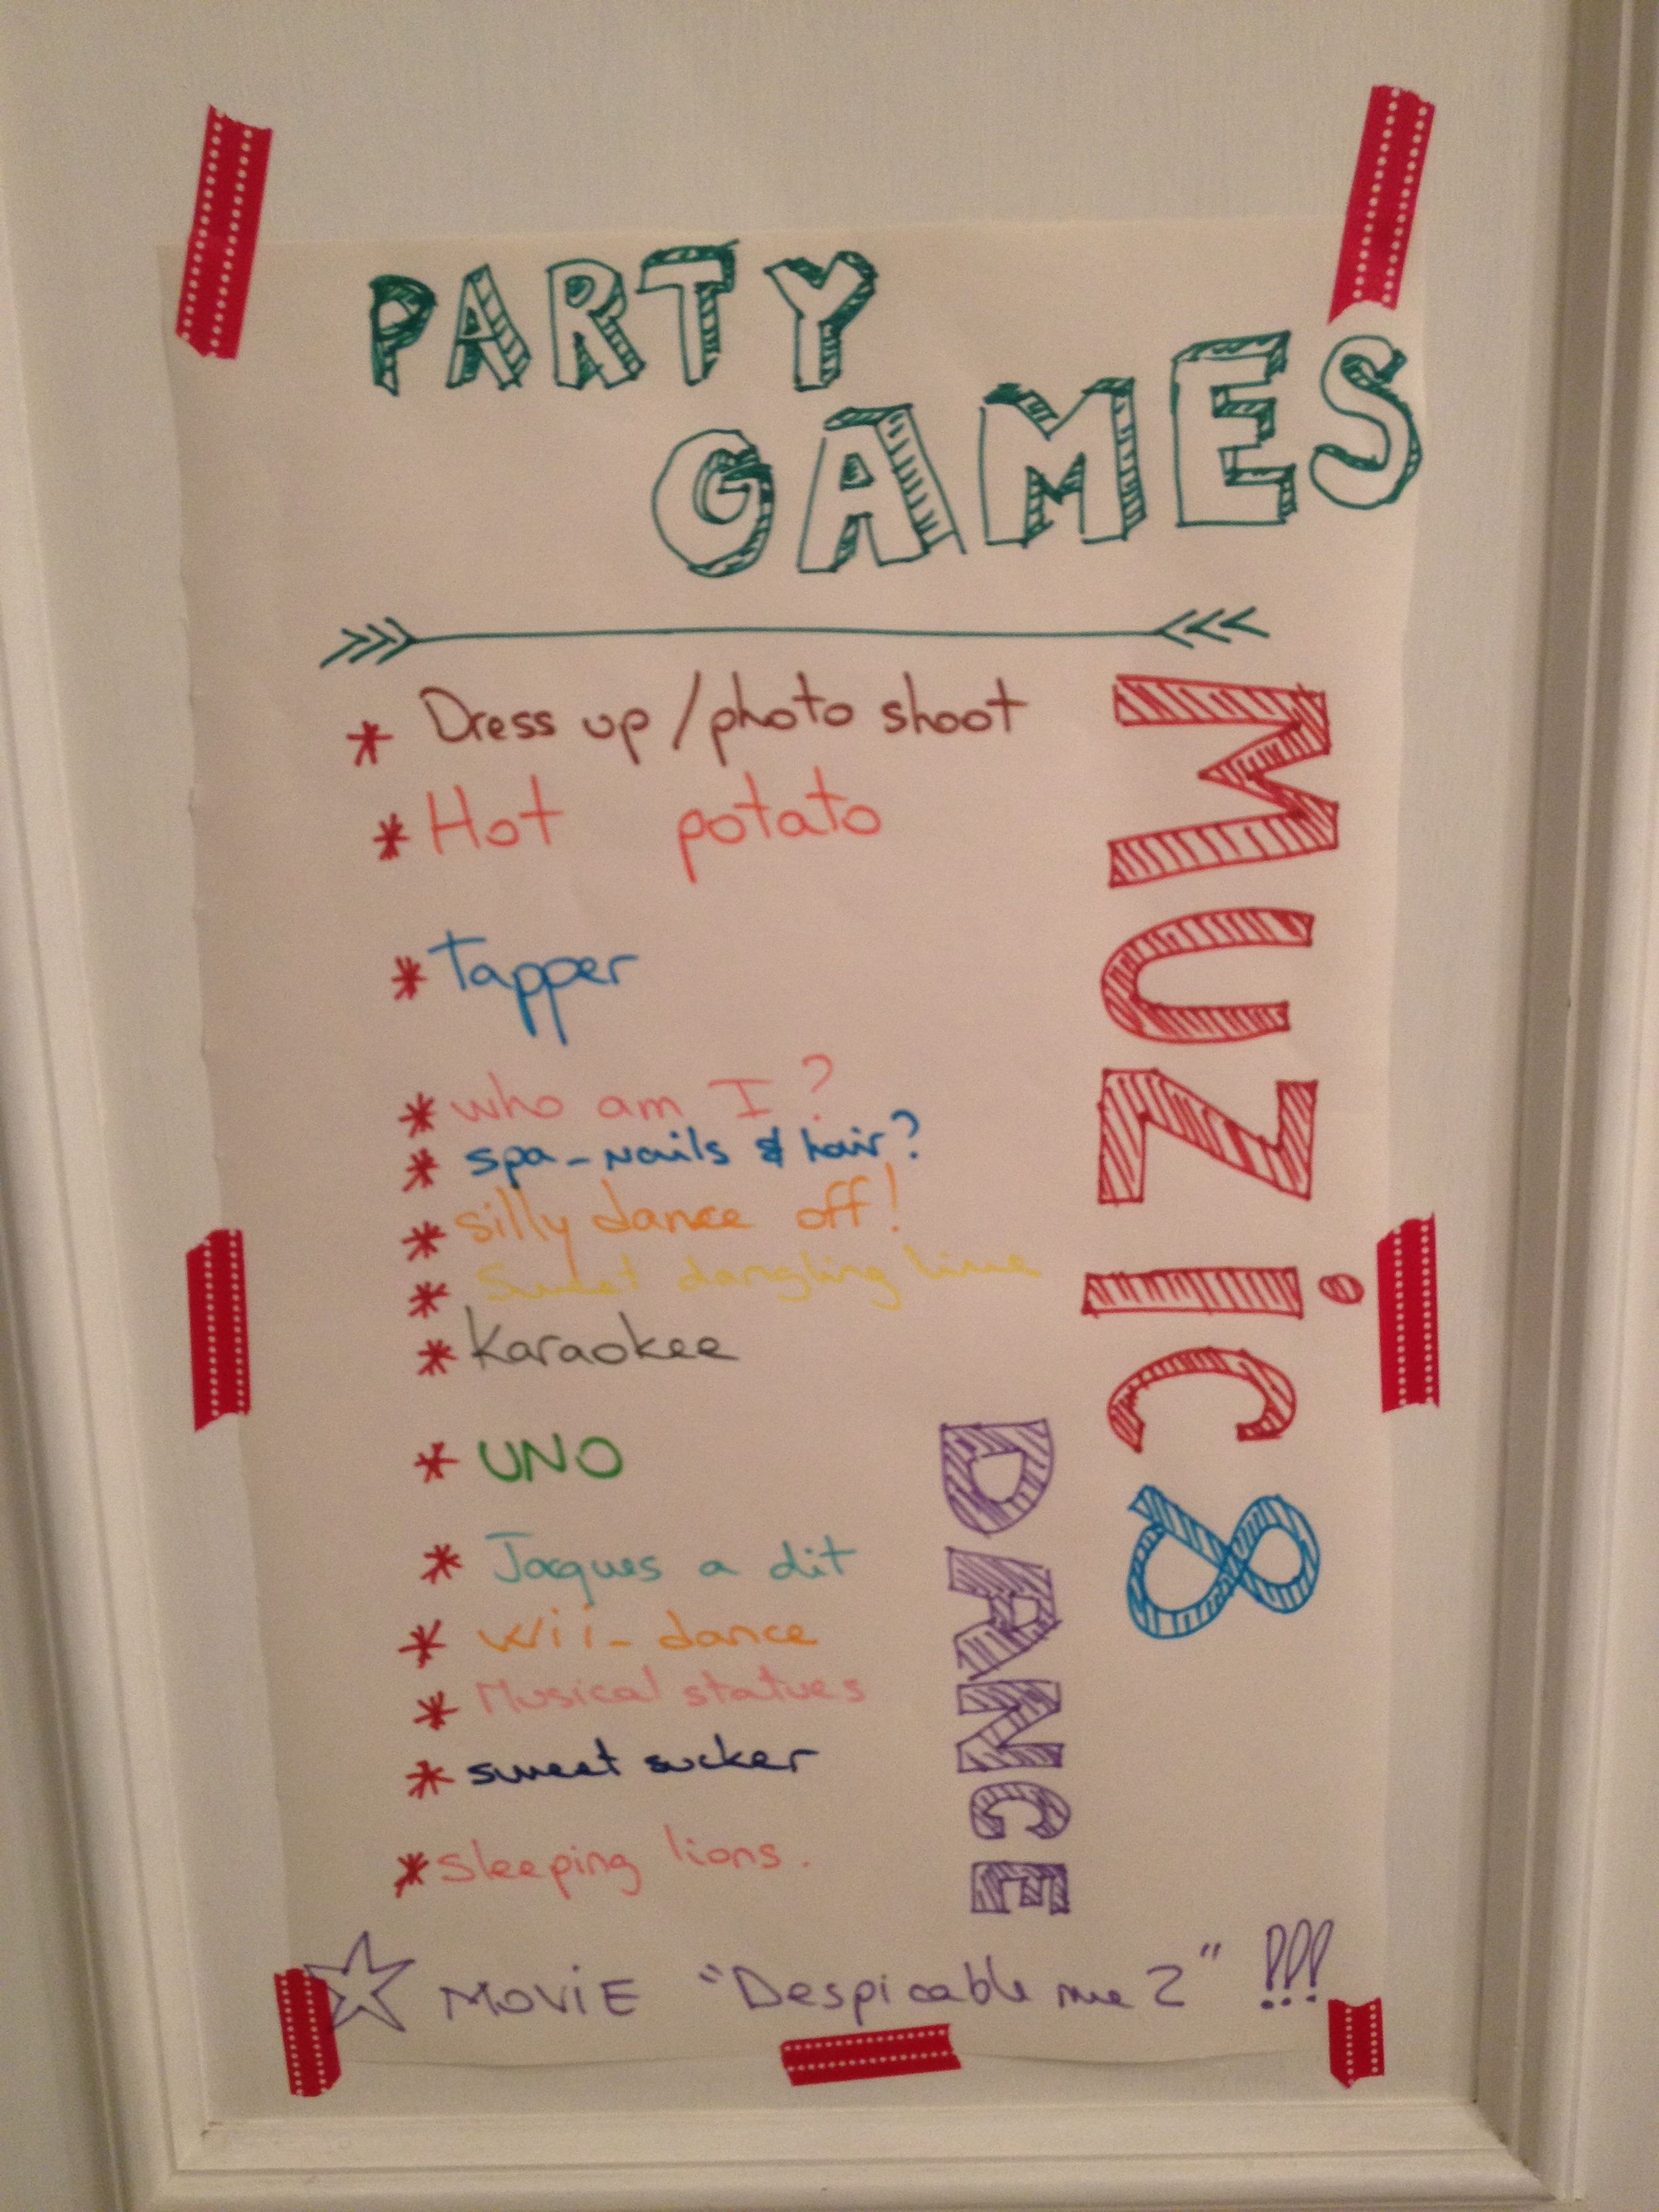 PARTY
GAMES
* Dress up / photo shoot
* Hot potato
* Tapper
* who am I?
* spa - nails & hair?
* silly dance off!
* Sweet dangling line
* Karaokee
* UNO
* Jacques a dit
* Wii - dance
* Musical statues
* sweet sucker
* Sleeping lions.
MUZiC &
DANCE
MOViE "Despicable me 2" !!!